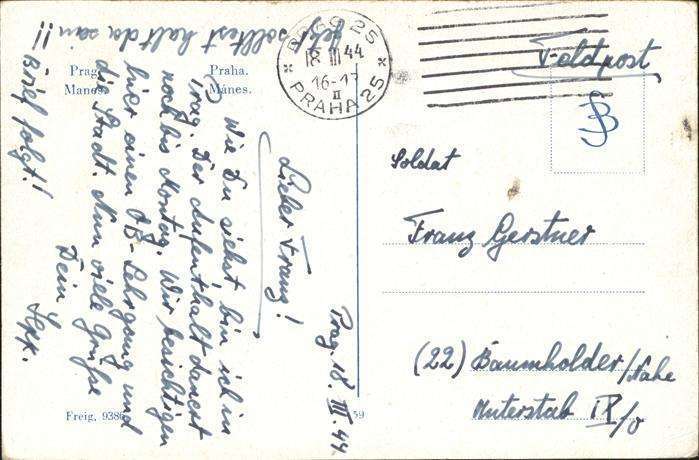 Prag. Praha.
Manes. Mánes.
Prag, 18. III. 44
Lieber Franz!
Wie Du siehst bin ich in
Prag. Der Aufenthalt dauert
noch bis Montag. Wir besichtigen
hier einen Lehrgang und
die Stadt. Nun viele Grüße
Dein
Brief folgt!
solltest halt da sein!!
Freig. 938
59
PRAG 25
18 III 44
16-17
II
PRAHA 25
Feldpost
Soldat
Franz Gerstner
(22) Baumholder/Nahe
Unterstab IX/0